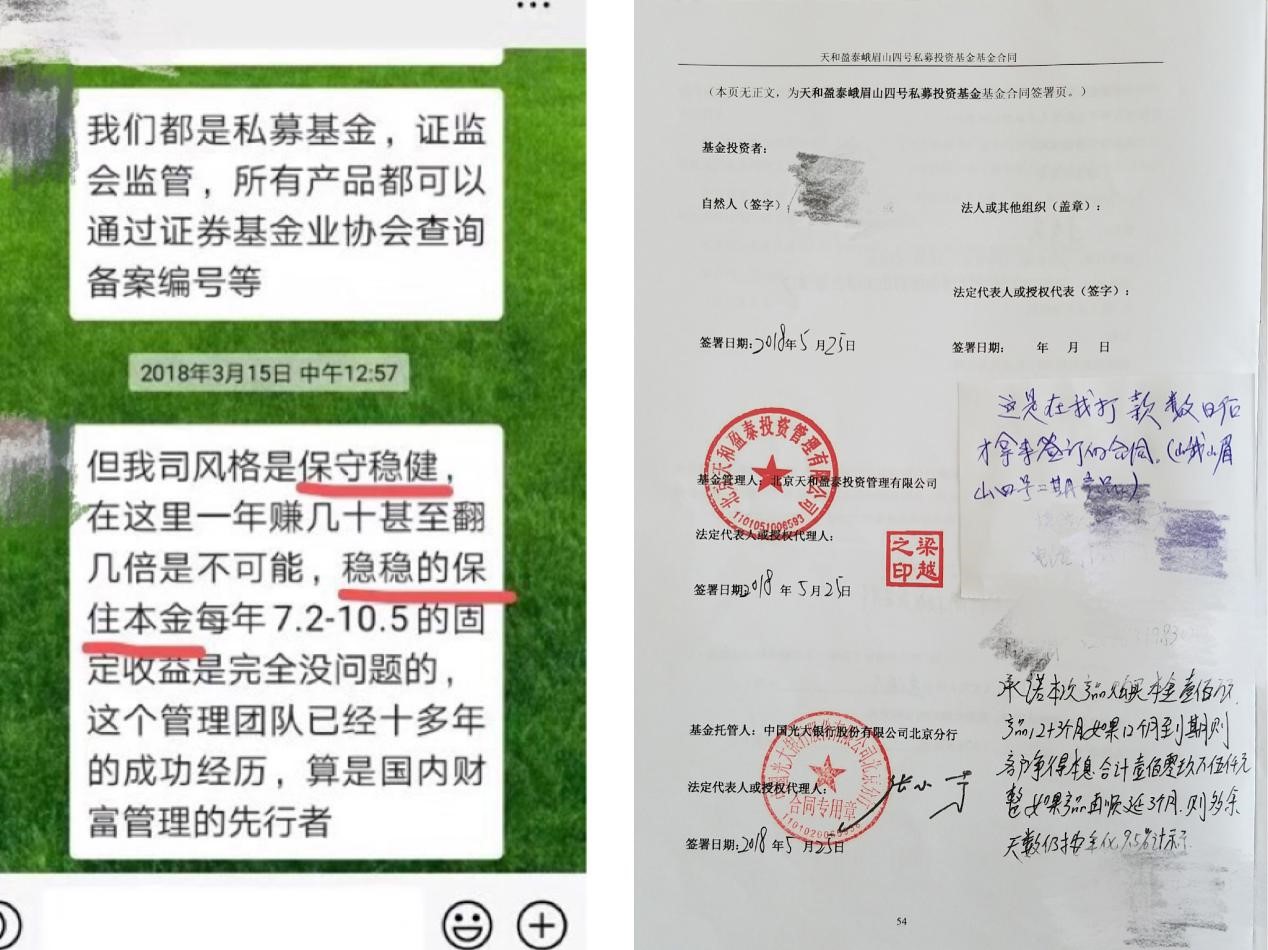 我们都是私募基金，证监
会监管，所有产品都可以
通过证券基金业协会查询
备案编号等
2018年3月15日 中午12:57
但我司风格是保守稳健，
在这里一年赚几十甚至翻
几倍是不可能，稳稳的保
住本金每年7.2-10.5的固
定收益是完全没问题的，
这个管理团队已经十多年
的成功经历，算是国内财
富管理的先行者
天和盈泰峨眉山四号私募投资基金基金合同
（本页无正文，为天和盈泰峨眉山四号私募投资基金基金合同签署页。）
基金投资者：
自然人（签字）：
法人或其他组织（盖章）：
法定代表人或授权代表（签字）：
签署日期:2018年5月25日
签署日期： 年 月 日
这是在我打款数日后
才拿来签订的合同.(山峨山眉
山四号二期产品)
北京天和盈泰投资管理有限公司
1101051006593
基金管理人：北京天和盈泰投资管理有限公司
法定代表人或授权代理人：
梁越
之印
签署日期:2018年5月25日
承诺本次产品购买本金壹佰万.
产品12+3个月如果12个月到期则
客户净得本息合计壹佰零玖万伍仟元
整如果产品再顺延3个月.则多余
天数仍按年化9.5%计示
基金托管人：中国光大银行股份有限公司北京分行
中国光大银行股份有限公司北京分行
合同专用章
法定代表人或授权代理人：
张小宁
签署日期:2018年5月25日
54